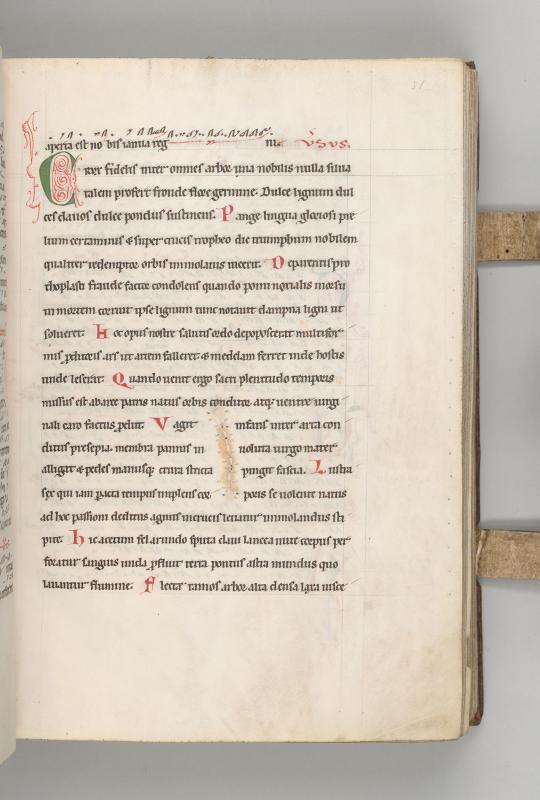 51
aperta est no bis ianua reg ni. VSVS.
Crux fidelis inter omnes arbor una nobilis nulla silua
talem profert fronde flore germine. Dulce lignum dul
ces clauos dulce pondus sustinens. Pange lingua gloriosi pre
lium certaminis & super crucis tropheo dic triumphum nobilem
qualiter redemptor orbis immolatus uicerit. De parentis pro
thoplasti fraude factor condolens quando pomi noxialis morsu
in mortem corruit ipse lignum tunc notauit dampna ligni ut
solueret. Hoc opus nostre salutis ordo depoposcerat multifor
mis perditoris ars ut artem falleret & medelam ferret inde hostis
unde leserat. Quando uenit ergo sacri plenitudo temporis
missus est ab arce patris natus orbis conditor atq; uentre uirgi
nali caro factus prodiit. Vagit infans inter arta con
ditus presepia. membra pannis in uoluta uirgo mater
alligat & pedes manusq; crura stricta pingit fascia. Lustra
sex qui iam peracta tempus implens cor poris se uolente natus
ad hoc passioni deditus agnus in crucis leuatur immolandus sti
pite. Hic acetum fel arundo sputa claui lancea mite corpus per
foratur sanguis unda profluit terra pontus astra mundus quo
lauantur flumine. Flecte ramos arbor alta densa laxa uisce